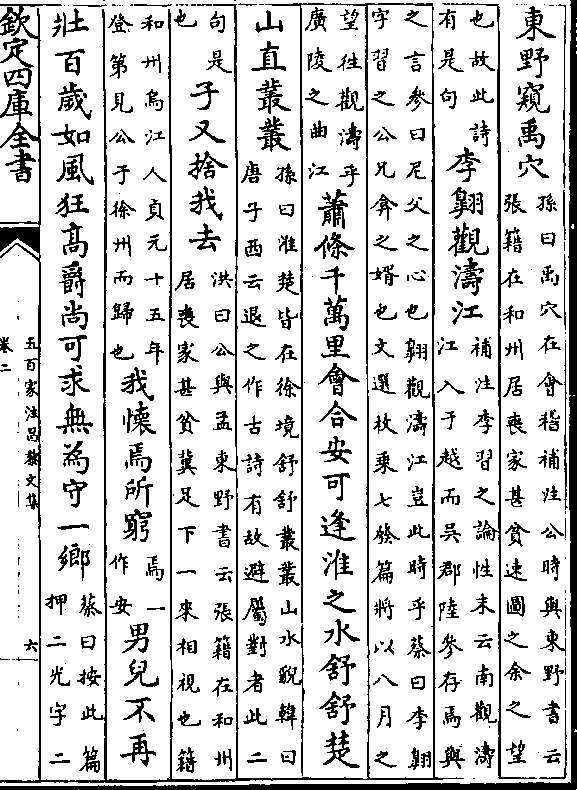 東野窺禹穴孫曰禹穴在會稽補注公時與東野書云張籍在和州居喪家甚貧速圖之余之望
也故此詩有是句李翺觀濤江補注李習之論性末云南觀濤江入于越而吳郡陸參存焉與
之言參曰尼父之心也翺觀濤江豈此時乎蔡曰李翺字習之公兄弇之婿也文選枚乘七發篇將以八月之
望往觀濤乎廣陵之曲江蕭條千萬里會合安可逢淮之水舒舒楚
山直叢叢孫曰淮楚皆在徐境舒舒叢叢山水貌韓曰唐子西云退之作古詩有故避屬對者此二
句是也子又捨我去洪曰公與孟東野書云張籍在和州居喪家甚貧冀足下一來相視也籍
和州烏江人貞元十五年登第見公于徐州而歸也我懷焉所窮焉一作安男兒不再
壯百歲如風狂高爵尚可求無為守一鄉蔡曰按此篇押二光字二
欽定四庫全書
五百家注昌黎文集
卷二
六